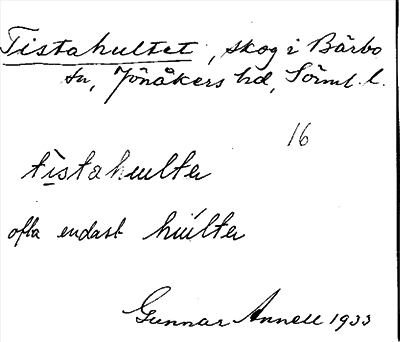 Tistahultet, skog i Bärbo
sn, Jönåkers hd, Sörml. l.
16
tìstahulter
ofta endast húlter
Gunnar Annell 1933